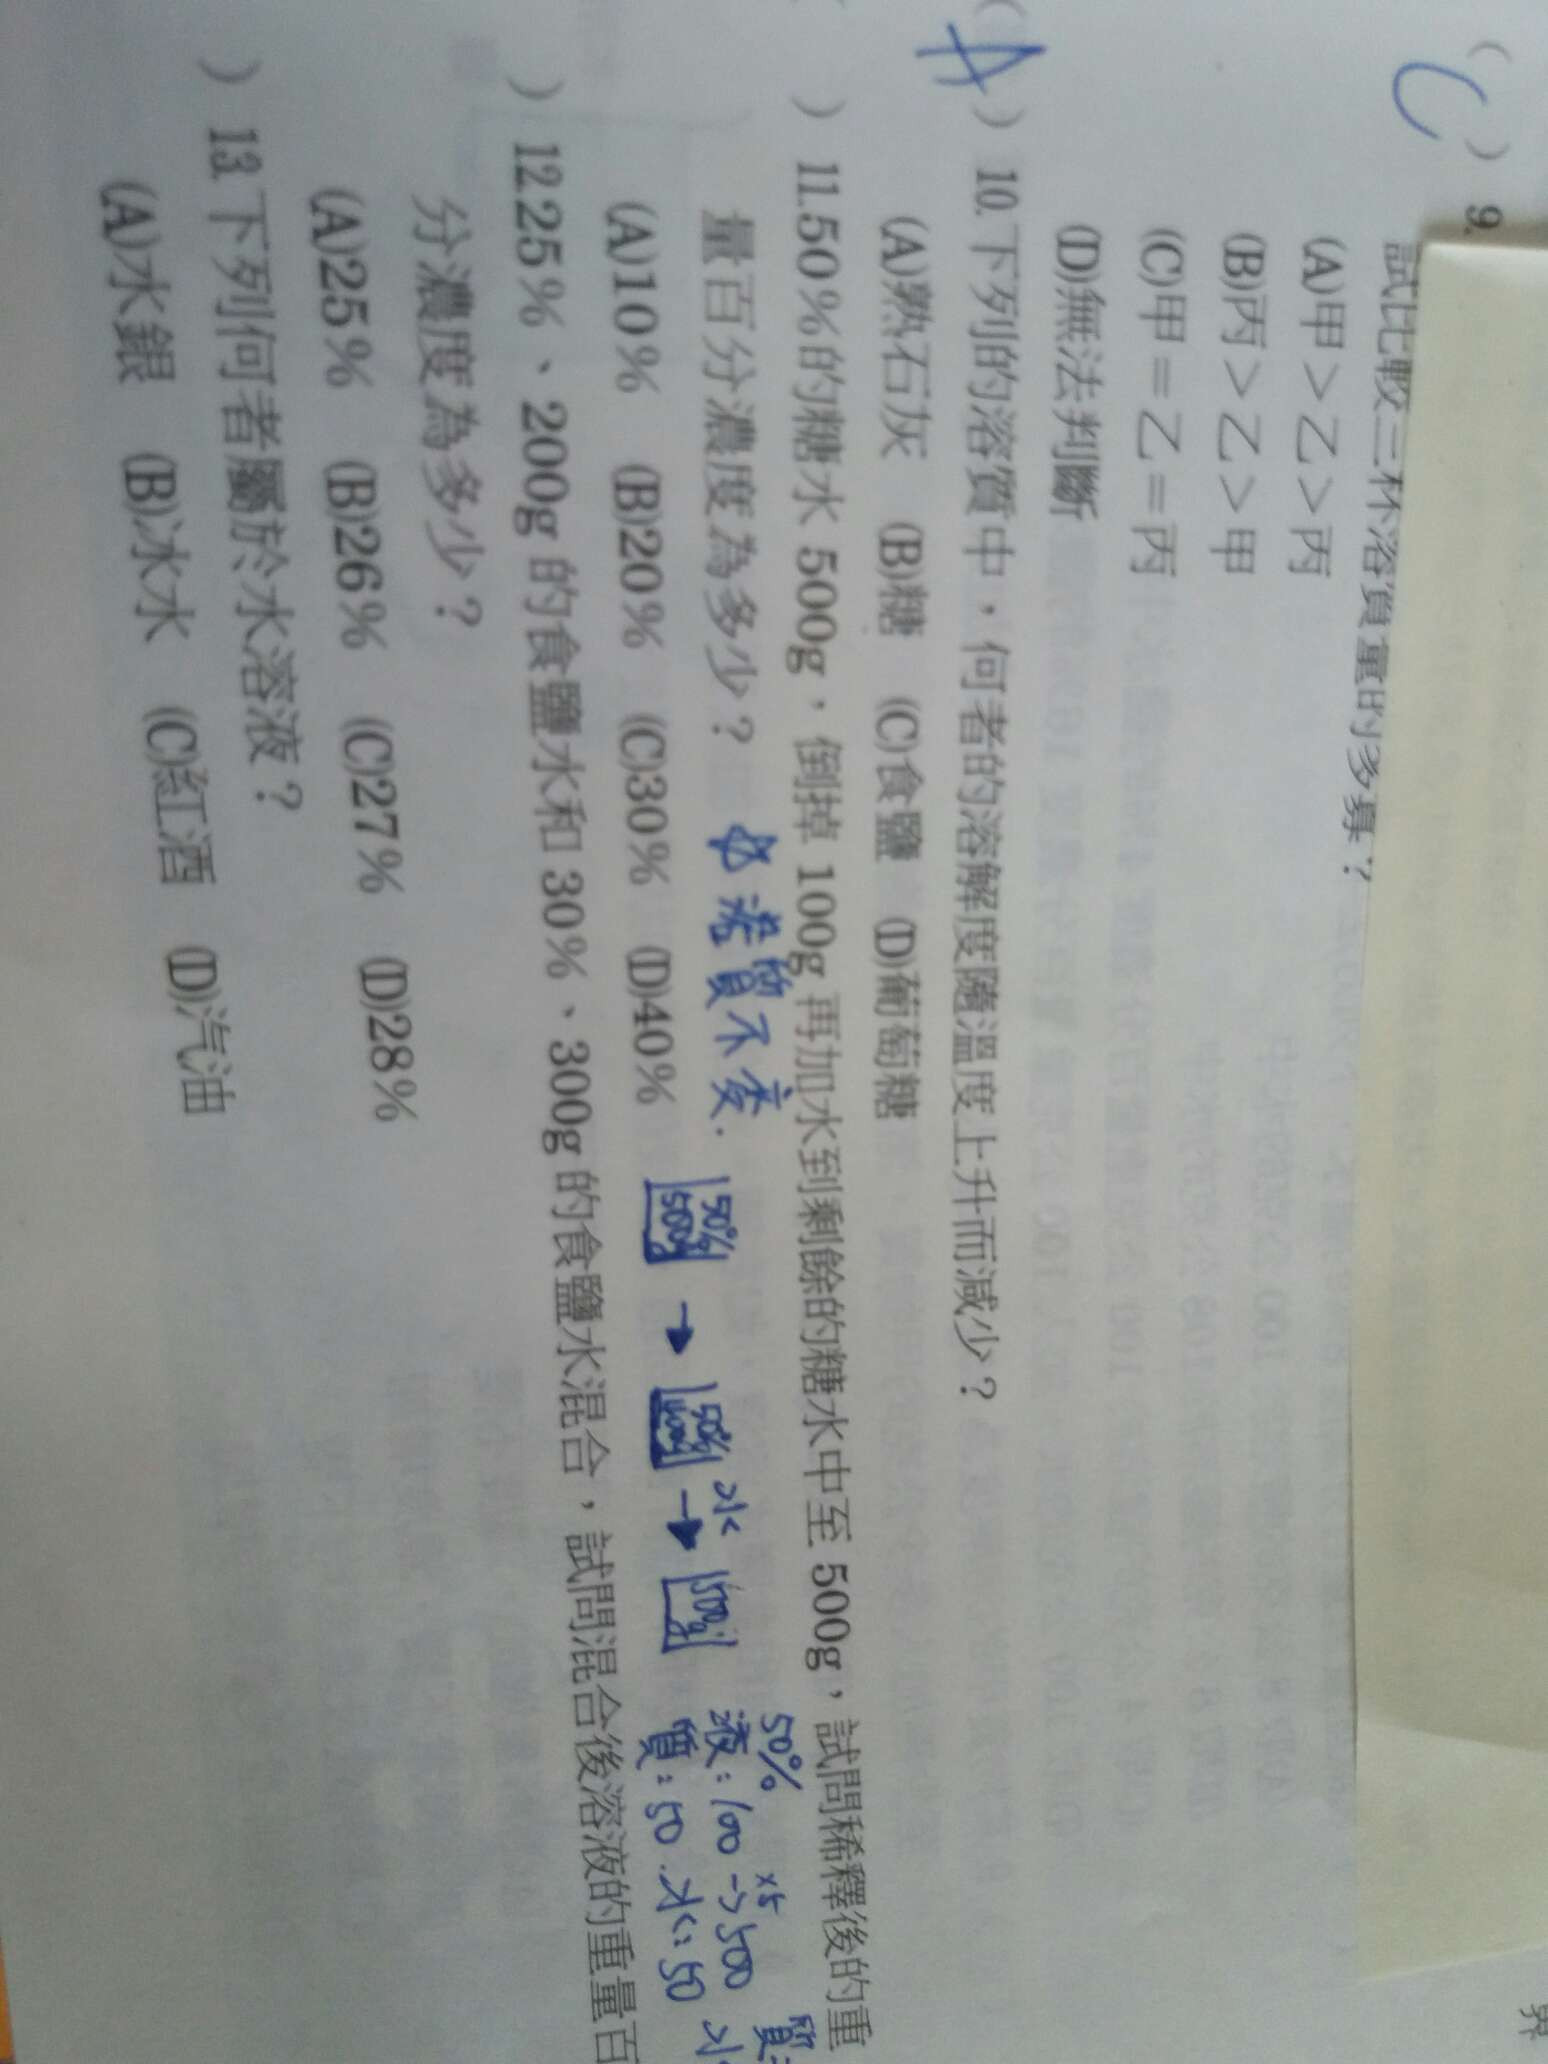 ( C ) 9.
試比較三杯溶質量的多寡？
(A)甲＞乙＞丙
(B)丙＞乙＞甲
(C)甲＝乙＝丙
(D)無法判斷
( A ) 10.下列的溶質中，何者的溶解度隨溫度上升而減少？
(A)熟石灰 (B)糖 (C)食鹽 (D)葡萄糖
) 11.50％的糖水 500g，倒掉 100g 再加水到剩餘的糖水中至 500g，試問稀釋後的重
量百分濃度為多少？ 溶質不變.
(A)10％ (B)20％ (C)30％ (D)40％
50% 500g → 50% 400g 水 → 500g
50% ×5 質:
液:100→500
質:50 水:50
) 12.25％、200g 的食鹽水和 30％、300g 的食鹽水混合，試問混合後溶液的重量百
分濃度為多少？
(A)25％ (B)26％ (C)27％ (D)28％
) 13.下列何者屬於水溶液？
(A)水銀 (B)冰水 (C)紅酒 (D)汽油
界